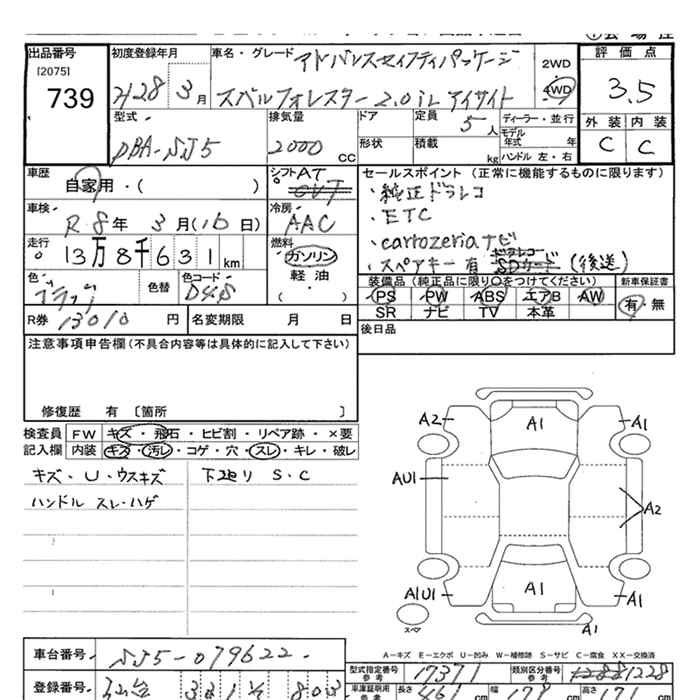 出品番号
初度登録年月
車名・グレード
アドバンスセイフティパッケージ
2WD
評価点
[2075]
739
H28年 3月
スバルフォレスター 2.0iL アイサイト
4WD
3.5
型式
排気量
ドア
定員 5人
ディーラー・並行
外装 内装
モデル年式 年
DBA-SJ5
2000 CC
形状
積載 kg
ハンドル 左・右
C C
車歴
自家用・( )
シフト AT
CVT
セールスポイント (正常に機能するものに限ります)
・純正ドラレコ
・ETC
・carrozeriaナビ
・スペアキー有 ドラレコード SDカード (後送)
車検
R8年 3月(16日)
冷房
AAC
走行
13万8千631km
燃料
ガソリン
軽油
( ・ )
色
ブラック
色替
色コード
D4S
装備品 (純正品に限り○をつけてください)
新車保証書
PS PW ABS エアB AW
有・無
SR ナビ TV 本革
R券 13010円
名変期限 月 日
後日品
注意事項申告欄 (不具合内容等は具体的に記入して下さい)
修復歴 有 〔箇所 〕
検査員記入欄
FW キズ・飛石・ヒビ割・リペア跡・×要
内装 キズ・汚レ・コゲ・穴・スレ・キレ・破レ
キズ・U・ウスキズ
下廻り S・C
ハンドル スレ・ハゲ
A2
A1
A1
AU1
A2
A1U1
A1
A1
スペア
A1
A-キズ E-エクボ U-凹み W-補修跡 S-サビ C-腐食 XX-交換済
車台番号
SJ5-079622
型式指定番号 参考
17371
類別区分番号 参考
1228
登録番号
車庫証明用 参考
長さ cm
幅 cm
高さ cm